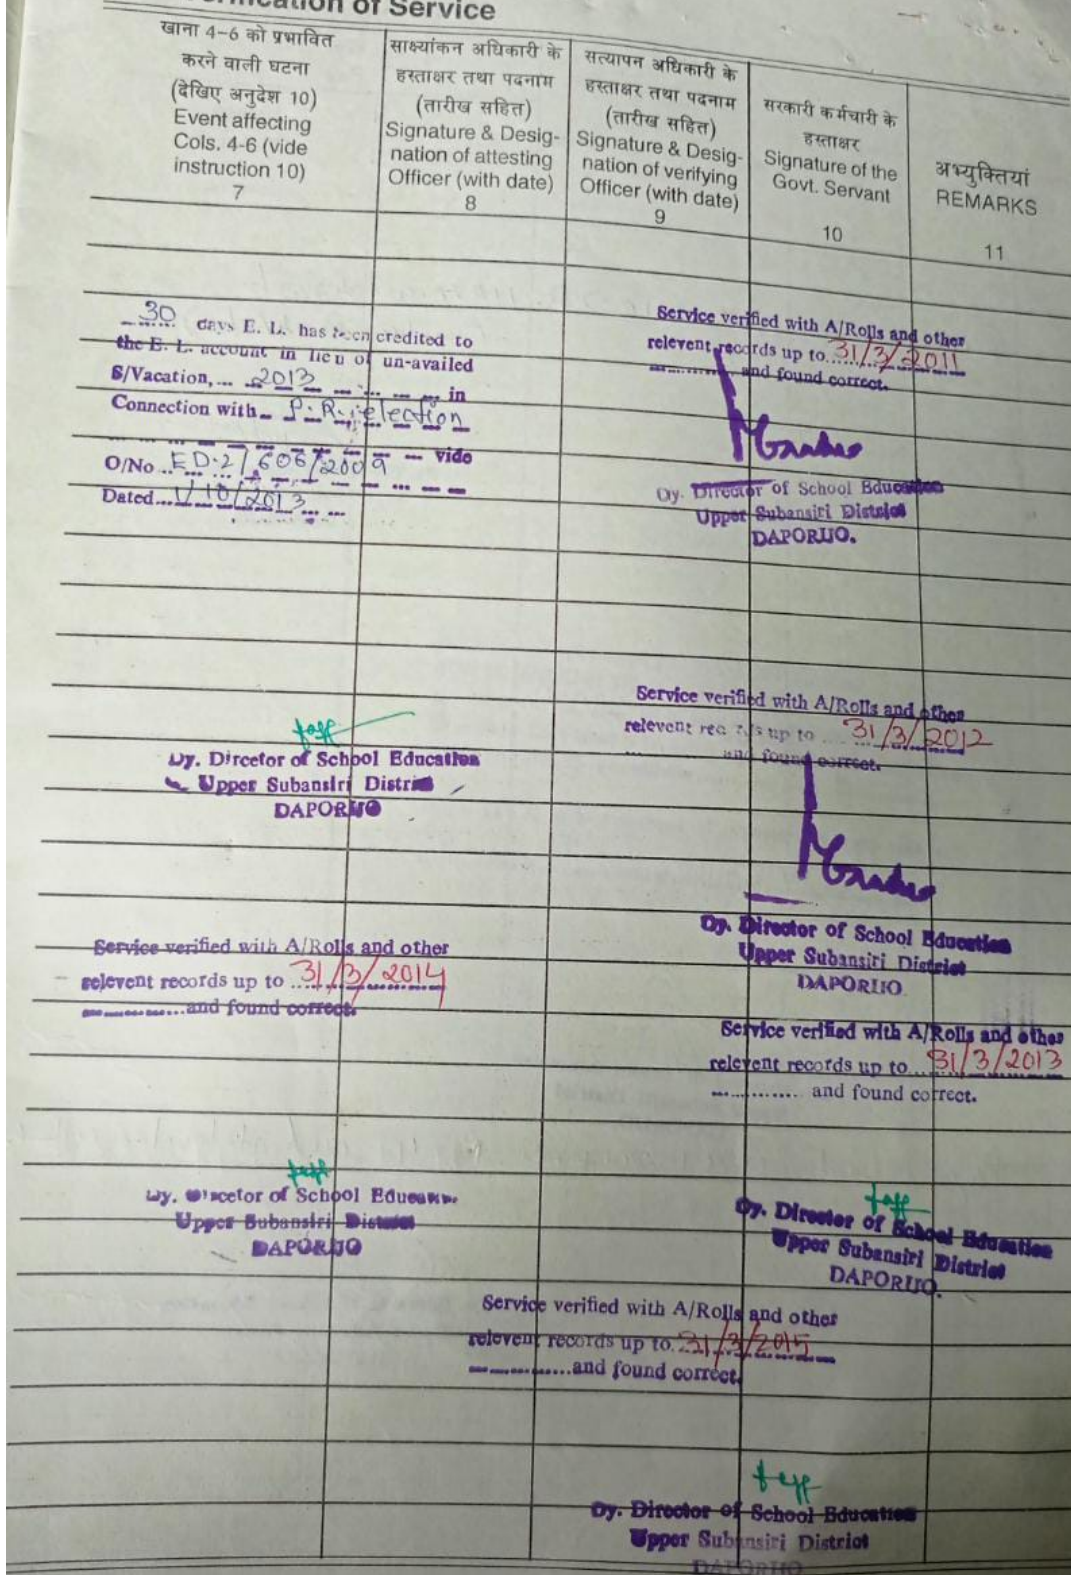 of Service
खाना 4-6 को प्रभावित
करने वाली घटना
(देखिए अनुदेश 10)
Event affecting
Cols. 4-6 (vide
instruction 10)
7
साक्ष्यांकन अधिकारी के
हस्ताक्षर तथा पदनाम
(तारीख सहित)
Signature & Desig-
nation of attesting
Officer (with date)
8
सत्यापन अधिकारी के
हस्ताक्षर तथा पदनाम
(तारीख सहित)
Signature & Desig-
nation of verifying
Officer (with date)
9
सरकारी कर्मचारी के
हस्ताक्षर
Signature of the
Govt. Servant
10
अभ्युक्तियां
REMARKS
11
30 days E. L. has been credited to
the E. L. account in lieu of un-availed
S/Vacation, 2013 in
Connection with P.R. election
O/No ED-2/606/2009 vide
Dated 1/10/2013
Service verified with A/Rolls and other
relevent records up to 31/3/2011
and found correct.
Dy. Director of School Education
Upper Subansiri District
DAPORIJO.
Service verified with A/Rolls and other
relevent records up to 31/3/2012
and found correct.
Dy. Director of School Education
Upper Subansiri District
DAPORIJO
Dy. Director of School Education
Upper Subansiri District
DAPORIJO
Service verified with A/Rolls and other
relevent records up to 31/3/2014
and found correct.
Service verified with A/Rolls and other
relevent records up to 31/3/2013
and found correct.
Dy. Director of School Education
Upper Subansiri District
DAPORIJO
Dy. Director of School Education
Upper Subansiri District
DAPORIJO.
Service verified with A/Rolls and other
relevent records up to 31/3/2015
and found correct.
Dy. Director of School Education
Upper Subansiri District
DAPORIJO